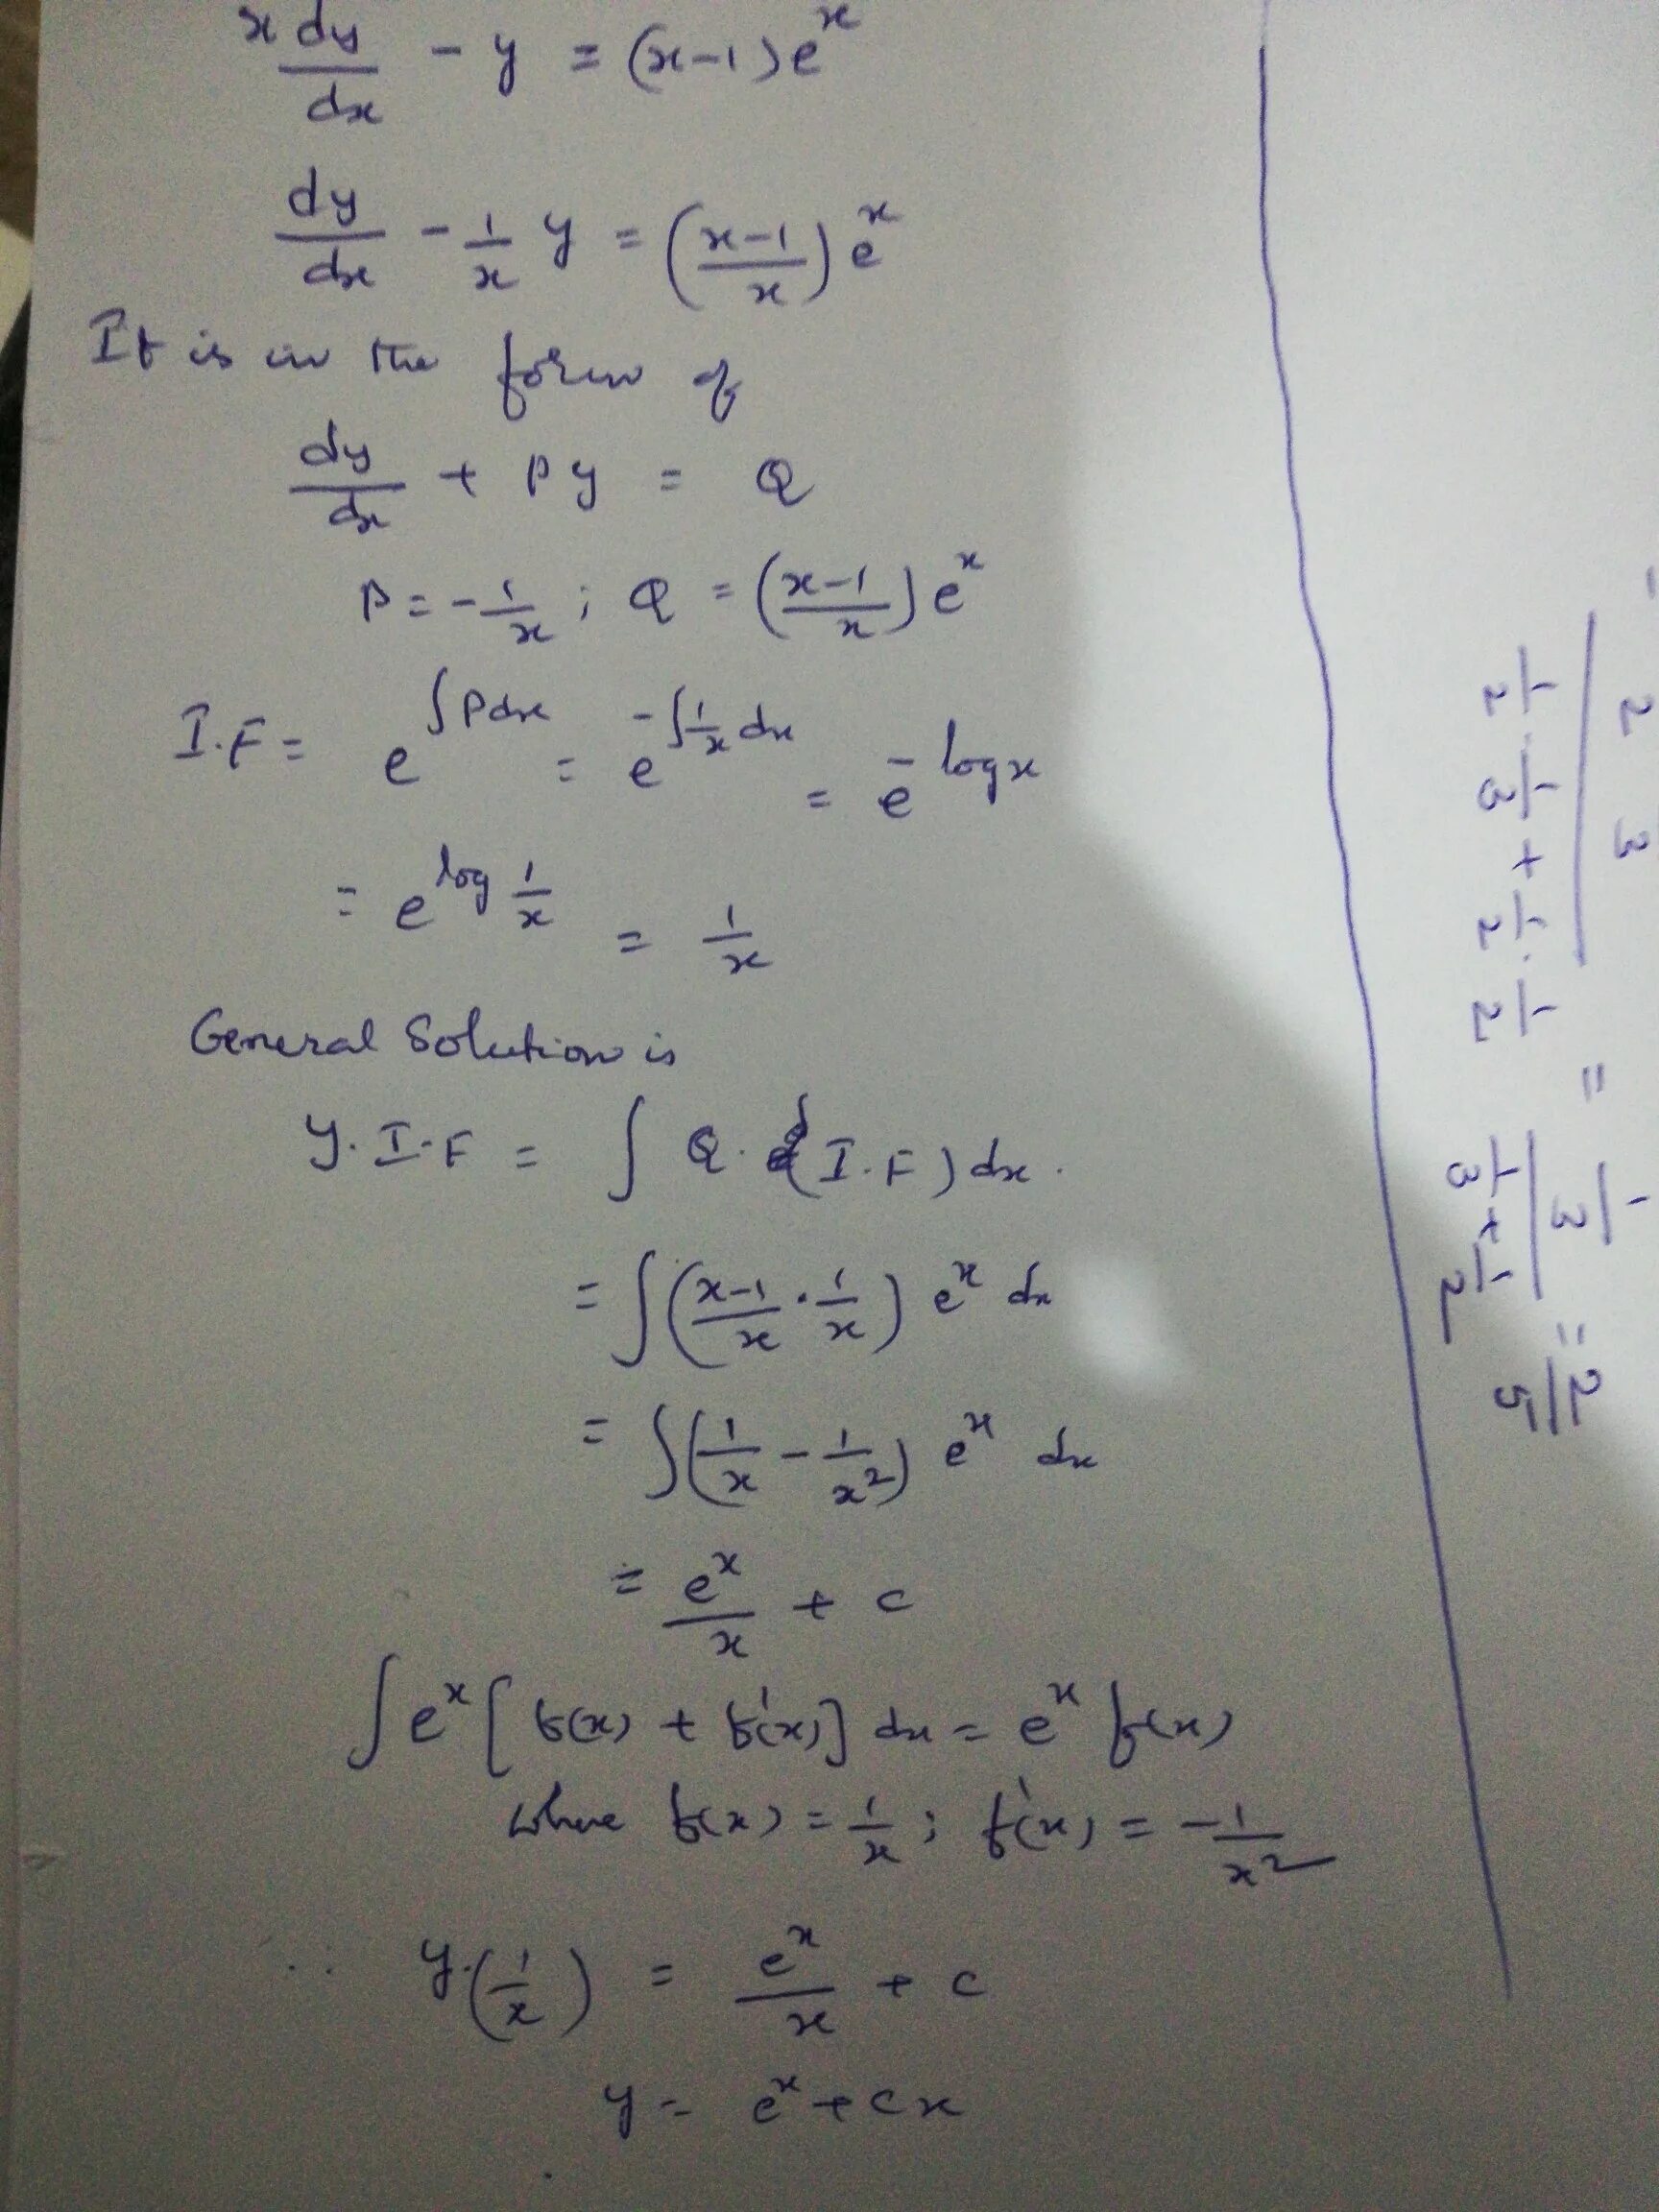 x dy/dx - y = (x-1)e^x
dy/dx - 1/x y = (x-1/x) e^x
It is in the form of
dy/dx + Py = Q
P = -1/x ; Q = (x-1/x) e^x
I.F = e^∫Pdx = e^-∫1/x dx = e^- log x
= e^log 1/x = 1/x
General Solution is
y. I.F = ∫ Q. (I.F) dx.
= ∫(x-1/x · 1/x) e^x dx
= ∫(1/x - 1/x²) e^x dx
= e^x/x + c
∫e^x [f(x) + f'(x)] dx = e^x f(x)
where f(x) = 1/x ; f'(x) = -1/x²
∴ y.(1/x) = e^x/x + c
y = e^x + cx
2 3
1/2 · 1/3 + 1/2 · 1/2 = 1/3
1/3 + 1/2 = 2/5